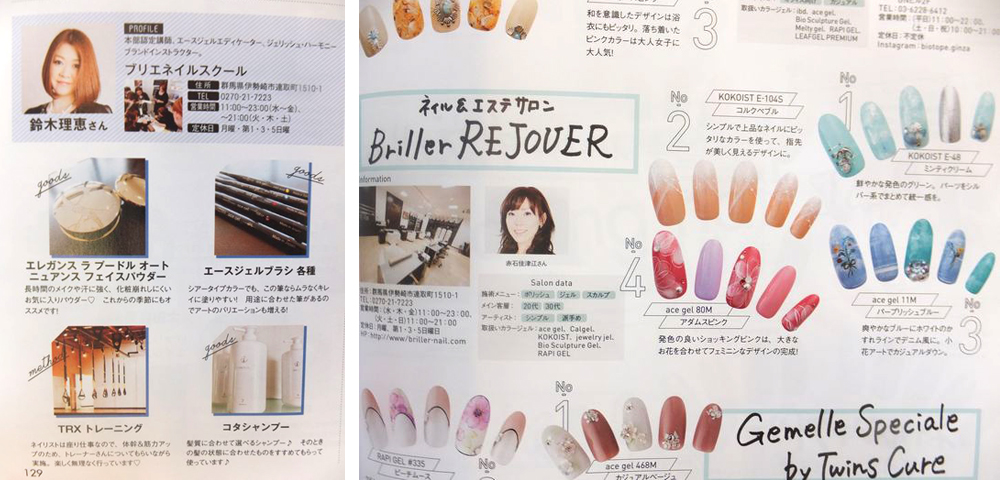 PROFILE
本部認定講師、エースジェルエディケーター、ジェリッシュ・ハーモニー
ブランドインストラクター。
ブリエネイルスクール
住所 群馬県伊勢崎市連取町1510-1
TEL 0270-21-7223
営業時間 11:00〜23:00(水〜金)、
〜21:00(火・木・土)
定休日 月曜・第1・3・5日曜
鈴木理恵さん
goods
goods
エレガンス ラ プードル オート
ニュアンス フェイスパウダー
長時間のメイクや汗に強く、化粧崩れしにくい
お気に入りパウダー♡ これからの季節にもオ
ススメです!
エースジェルブラシ 各種
シアータイプカラーでも、この筆ならムラなくキレ
イに塗りやすい! 用途に合わせた筆があるの
でアートのバリエーションも増える!
method
goods
TRX トレーニング
ネイリストは座り仕事なので、体幹&筋力アッ
プのため、トレーナーさんについてもらいながら
実施。楽しく無理なく行っています♡
コタシャンプー
髪質に合わせて選べるシャンプー♪ そのとき
の髪の状態に合わせたものをすすめてもらって
使っています♪
129
和を意識したデザインは浴
衣にもピッタリ。落ち着いた
ピンクカラーは大人女子に
大人気!
3
取扱いカラージェル:ibd. ace gel.
Bio Sculpture Gel.
Melty gel. RAPI GEL.
LEAFGEL PREMIUM
TEL:03-6228-6412
営業時間:(平日)11:00〜22:00、
定休日:不定休
Instagram:biotope.ginza
ネイル&エステサロン
Briller REJOUER
information
群馬県伊勢崎市連取町1510-1
TEL:0270-21-7223
営業時間:(水・木・金)11:00〜23:00、
(火・日・土)11:00〜21:00
定休日:月曜、第1・3・5日曜日
HP:http://www.briller-nail.com
赤石佳津江さん
Salon data
施術メニュー: ポリッシュ ジェル スカルプ
メイン客層: 20代 30代
アーティスト: シンプル 派手め
取扱いカラージェル:ace gel. Calgel.
KOKOIST. jewelry jel.
Bio Sculpture Gel.
RAPI GEL
No 2
KOKOIST E-104S
コルクペブル
シンプルで上品なネイルにピッ
タリなカラーを使って、指先
が美しく見えるデザインに。
No 1
KOKOIST E-48
ミンティクリーム
鮮やかな発色のグリーン。パーツをシル
バー系でまとめて統一感を。
No 4
ace gel 80M
アダムスピンク
発色の良いショッキングピンクは、大きな
お花を合わせてフェミニンなデザインの完成!
ace gel 11M
パープリッシュブルー
爽やかなブルーにホワイトのか
すれラインでデニム風に。小
花アートでカジュアルダウン。
No 3
RAPI GEL #335
ピーチムース
No
No 1
ace gel 468M
カジュアルベージュ
Gemelle Speciale
by Twins Cure